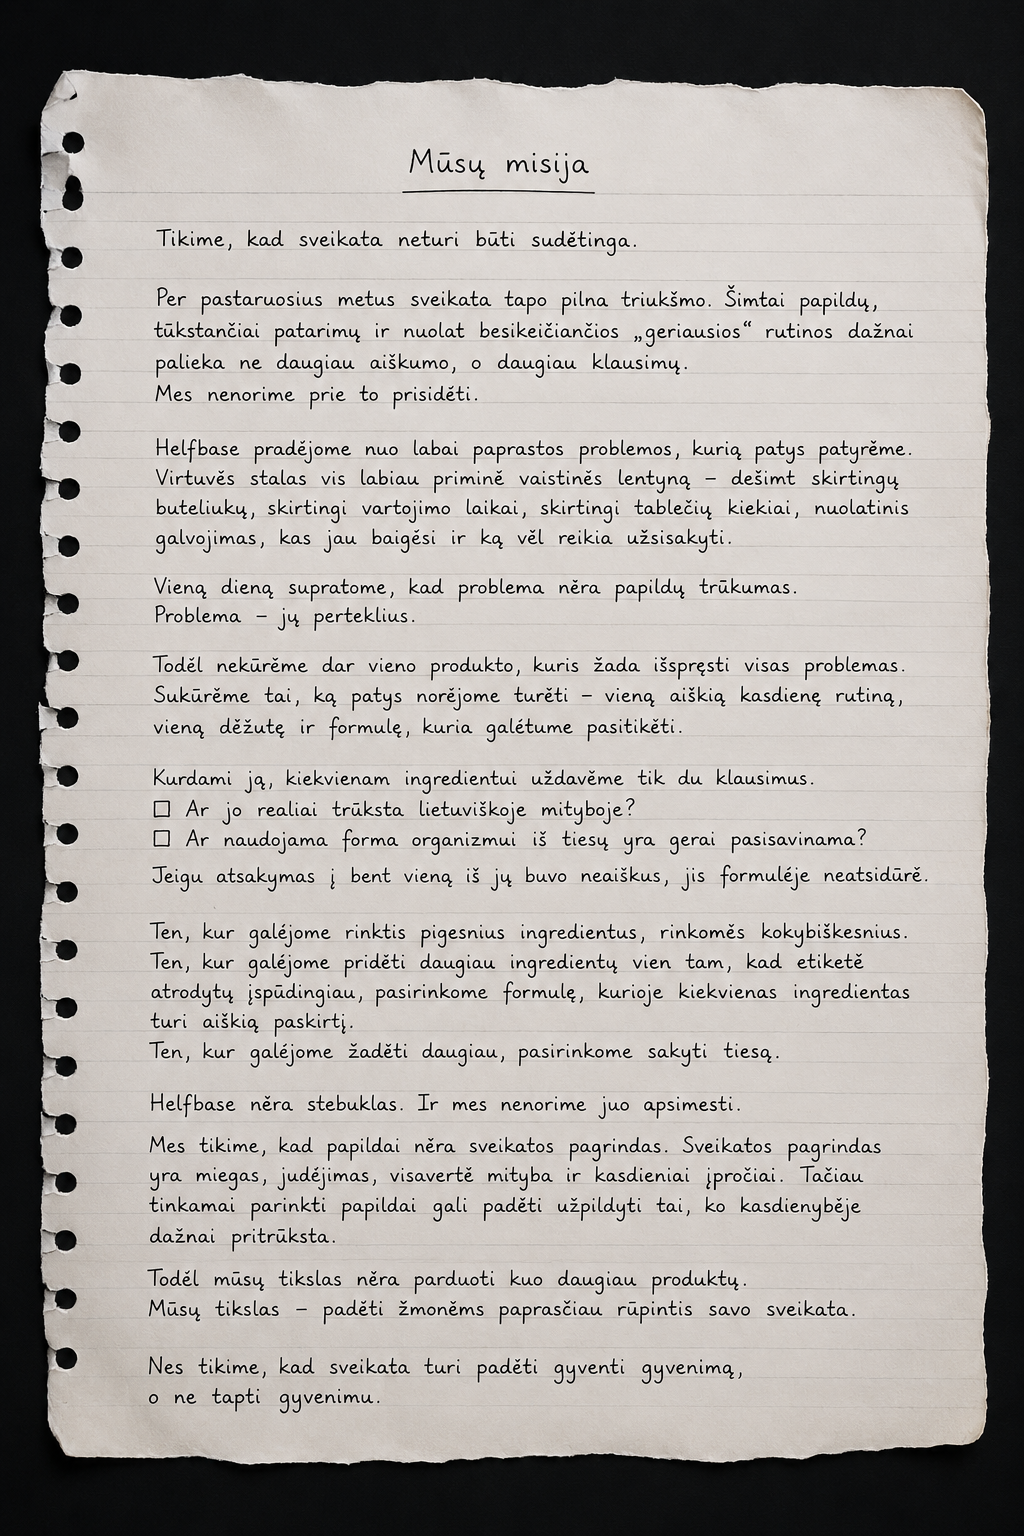 Mūsų misija
Tikime, kad sveikata neturi būti sudėtinga.
Per pastaruosius metus sveikata tapo pilna triukšmo. Šimtai papildų,
tūkstančiai patarimų ir nuolat besikeičiančios „geriausios“ rutinos dažnai
palieka ne daugiau aiškumo, o daugiau klausimų.
Mes nenorime prie to prisidėti.
Helfbase pradėjome nuo labai paprastos problemos, kurią patys patyrėme.
Virtuvės stalas vis labiau priminė vaistinės lentyną – dešimt skirtingų
buteliukų, skirtingi vartojimo laikai, skirtingi tablečių kiekiai, nuolatinis
galvojimas, kas jau baigėsi ir ką vėl reikia užsisakyti.
Vieną dieną supratome, kad problema nėra papildų trūkumas.
Problema – jų perteklius.
Todėl nekūrėme dar vieno produkto, kuris žada išspręsti visas problemas.
Sukūrėme tai, ką patys norėjome turėti – vieną aiškią kasdienę rutiną,
vieną dėžutę ir formulę, kuria galėtume pasitikėti.
Kurdami ją, kiekvienam ingredientui uždavėme tik du klausimus.
☐ Ar jo realiai trūksta lietuviškoje mityboje?
☐ Ar naudojama forma organizmui iš tiesų yra gerai pasisavinama?
Jeigu atsakymas į bent vieną iš jų buvo neaiškus, jis formulėje neatsidūrė.
Ten, kur galėjome rinktis pigesnius ingredientus, rinkomės kokybiškesnius.
Ten, kur galėjome pridėti daugiau ingredientų vien tam, kad etiketė
atrodytų įspūdingiau, pasirinkome formulę, kurioje kiekvienas ingredientas
turi aiškią paskirtį.
Ten, kur galėjome žadėti daugiau, pasirinkome sakyti tiesą.
Helfbase nėra stebuklas. Ir mes nenorime juo apsimesti.
Mes tikime, kad papildai nėra sveikatos pagrindas. Sveikatos pagrindas
yra miegas, judėjimas, visavertė mityba ir kasdieniai įpročiai. Tačiau
tinkamai parinkti papildai gali padėti užpildyti tai, ko kasdienybėje
dažnai pritrūksta.
Todėl mūsų tikslas nėra parduoti kuo daugiau produktų.
Mūsų tikslas – padėti žmonėms paprasčiau rūpintis savo sveikata.
Nes tikime, kad sveikata turi padėti gyventi gyvenimą,
o ne tapti gyvenimu.